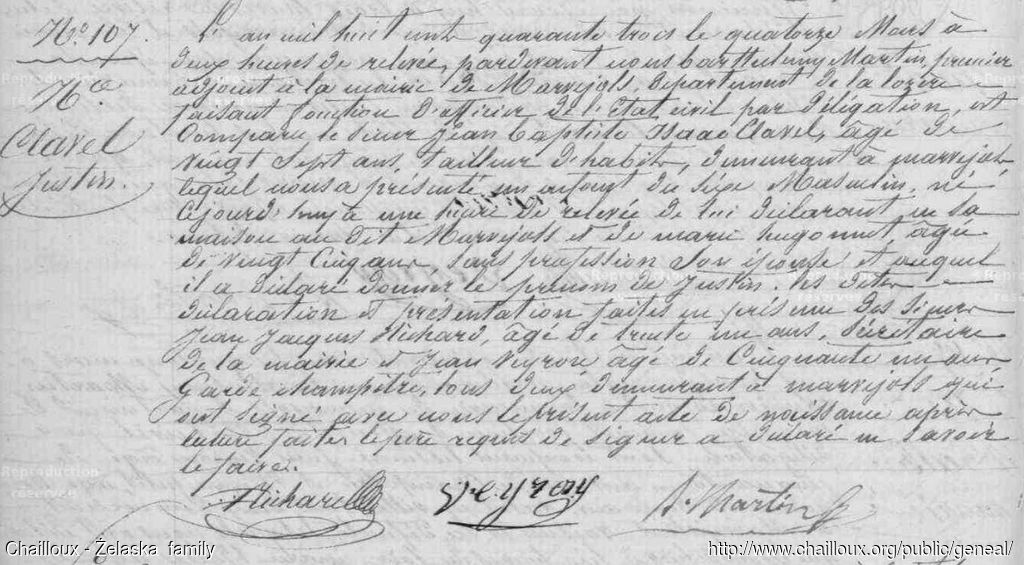 N.º 107.
Nce
Clavel
Justin.
L'an mil huit cent quarante trois le quatorze Mars à
deux heures de relevée, pardevant nous Barthelemy Martin, premier
adjoint à la mairie de Marvejols, département de la lozère
faisant fonction d'officier de l'Etat civil par déligation, est
Comparu le sieur Jean Baptiste Isaac Clavel, âgé de
vingt Sept ans, tailleur d'habits, demeurant à marvejols
lequel nous a présenté un enfant du séxe Masculin, né
cejourd'huy à une heure de relevée de lui déclarant en sa
maison au dit Marvejols et de marie hugonnet agée
de vingt Cinq ans, sans profession Son épouse et auquel
il a déclaré donner le prénom de Justin. les dites
déclaration et présentation faites en présence des Sieurs
Jean Jacques Richard, âgé de trente un ans, Sécrétaire
de la mairie et Jean Veyron, agé de Cinquante un ans
Garde champêtre, tous deux demeurant à marvejols qui
ont signé avec nous le présent acte de naissance après
lecture faite, le père requis de signer a déclaré ne Savoir
le faire.
Richard Veyrony B. Martin
Reproduction
reserved
Chailloux - Żelaska family
http://www.chailloux.org/public/geneal/